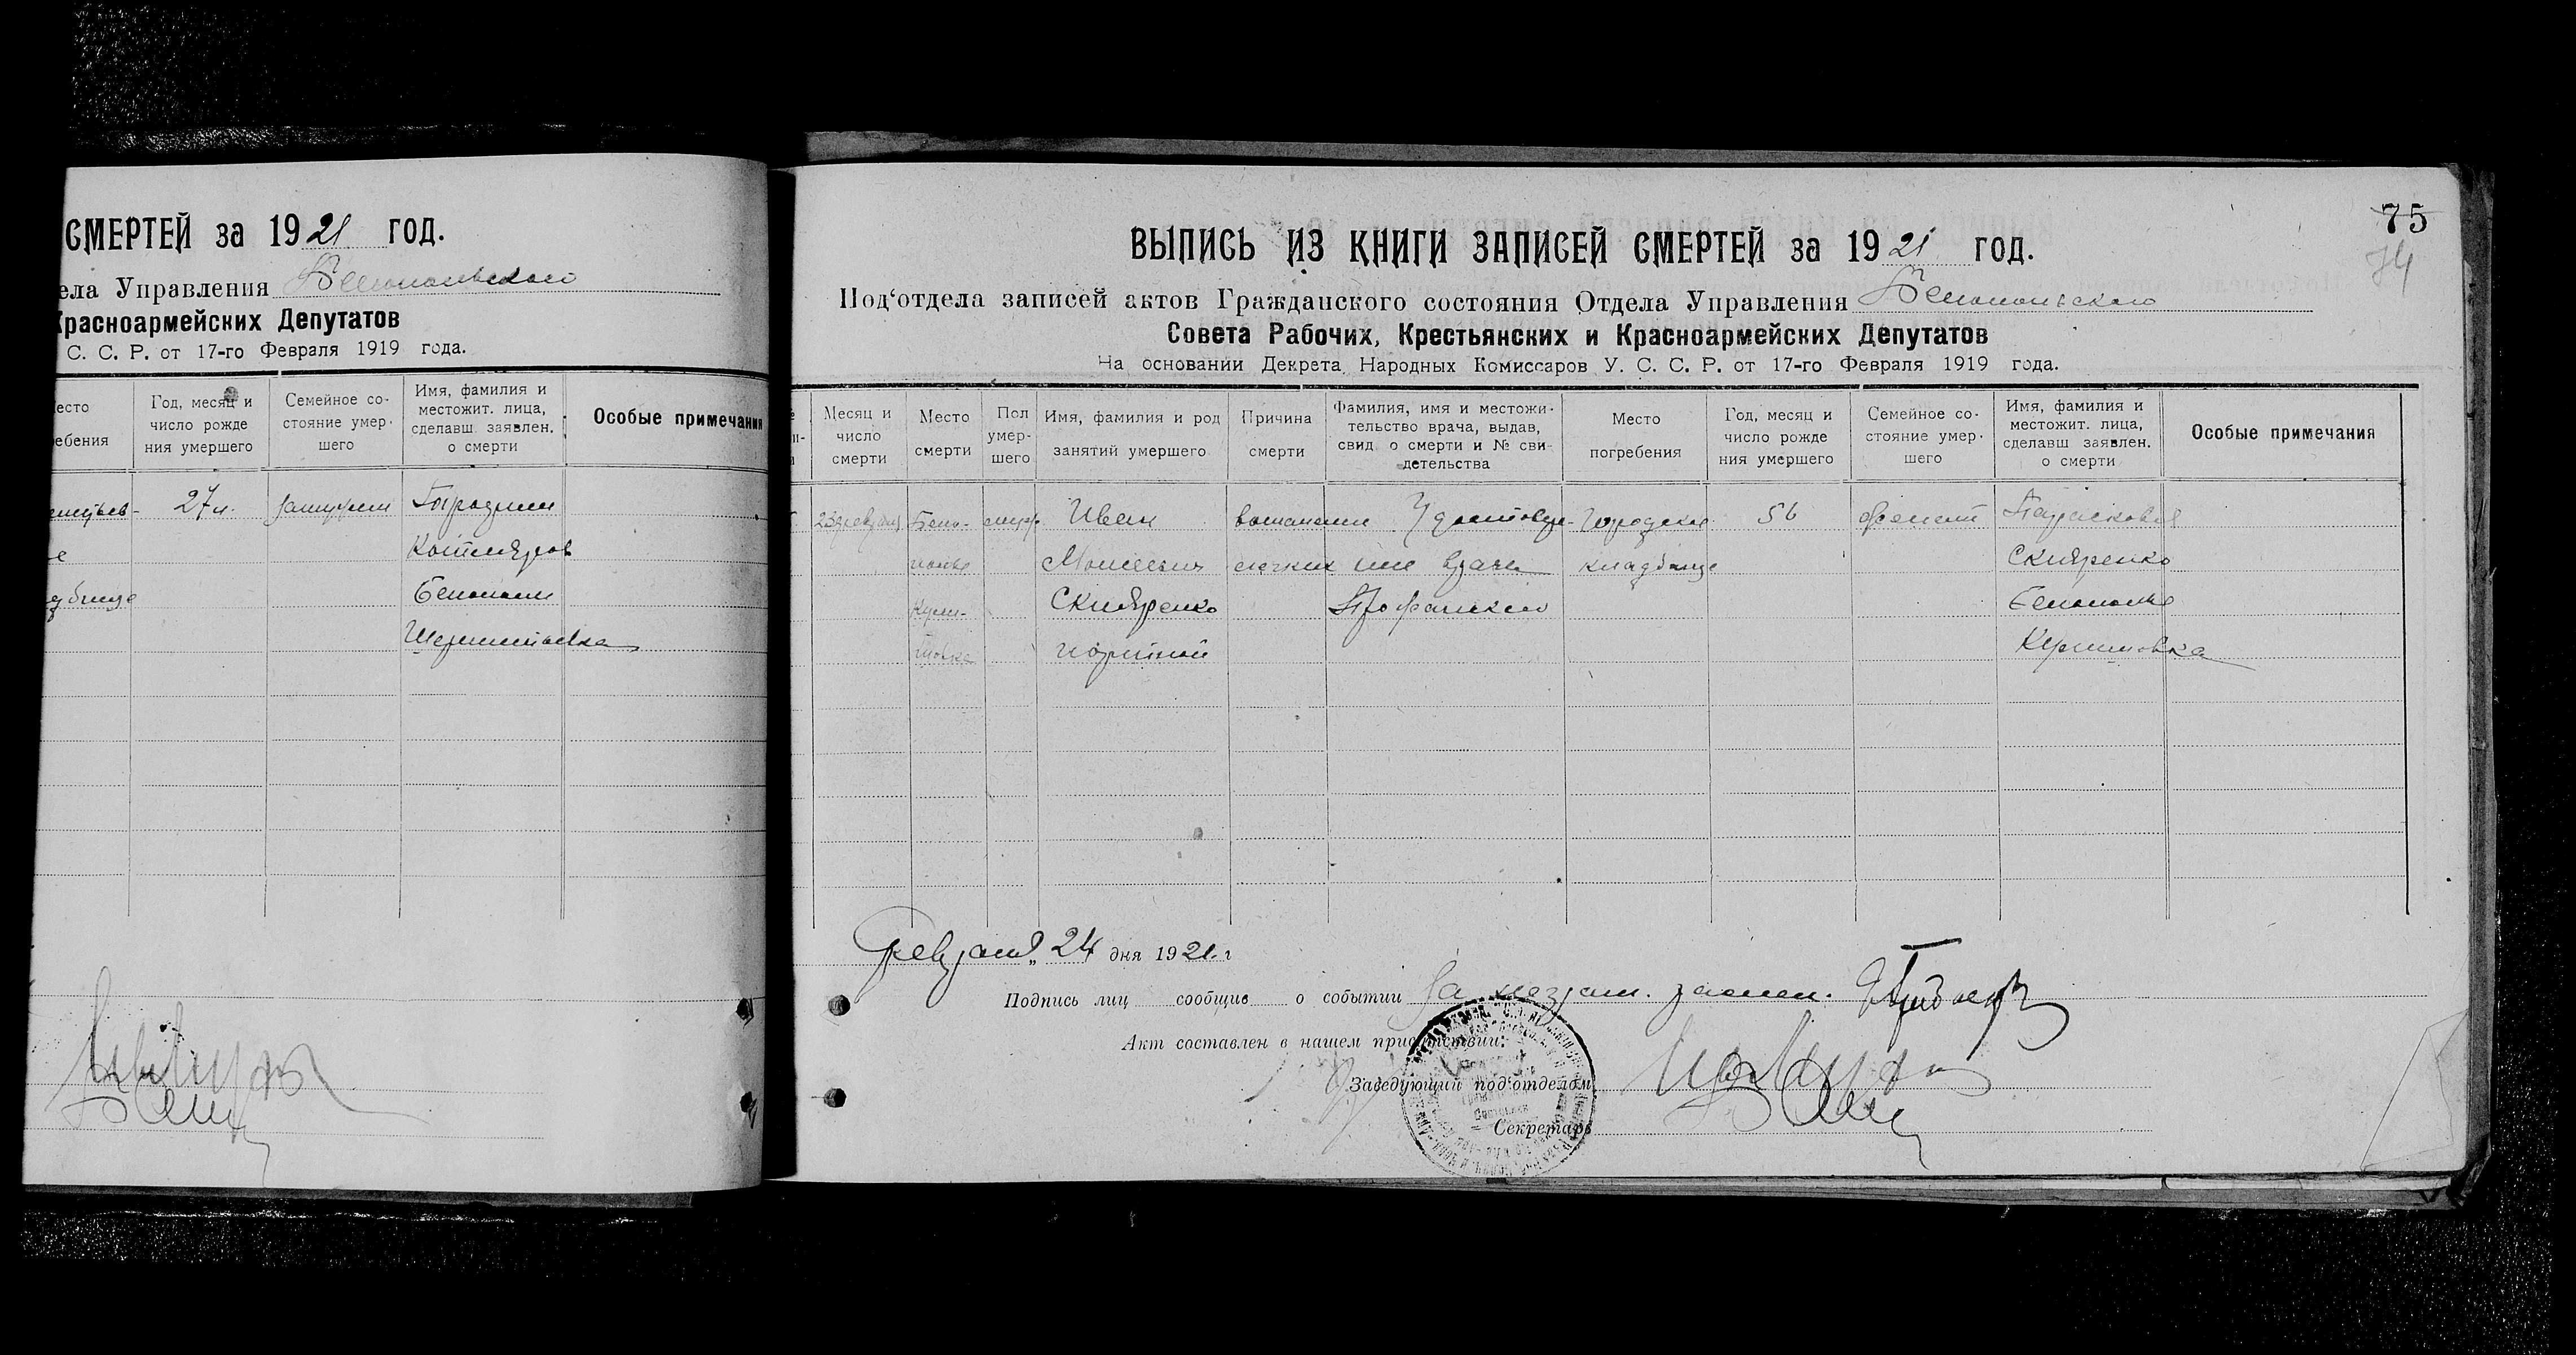 СМЕРТЕЙ за 1921 год.
ела Управления Белопольского
Красноармейских Депутатов
С. С. Р. от 17-го Февраля 1919 года.
есто
ебения
Год, месяц и
число рожде
ния умершего
Семейное со-
стояние умер-
шего
Имя, фамилия и
местожит. лица,
сделавш. заявлен.
о смерти
Особые примечания
27 л. замужем
е
дбище
Белополье
75
74
ВЫПИСЬ ИЗ КНИГИ ЗАПИСЕЙ СМЕРТЕЙ за 1921 год.
Под‘отдела записей актов Гражданского состояния Отдела Управления Белопольского
Совета Рабочих, Крестьянских и Красноармейских Депутатов
На основании Декрета Народных Комиссаров У. С. С. Р. от 17-го Февраля 1919 года.
Месяц и
число
смерти
Место
смерти
Пол
умер-
шего
Имя, фамилия и род
занятий умершего
Причина
смерти
Фамилия, имя и местожи-
тельство врача, выдав,
свид о смерти и № сви-
детельства
Место
погребения
Год, месяц и
число рожде
ния умершего
Семейное со-
стояние умер-
шего
Имя, фамилия и
местожит. лица,
сделавш заявлен.
о смерти
Особые примечания
23 февраля Бело- муж. Иван воспаление Удостовере- Городское 56 женат Парасковья
полье Моисеевич легких ние врача кладбище Скляренко
Кули- Скляренко Белополье
портной
Февраля 24 дня 1921 г
Подпись лиц сообщив о событии За неграм.
Акт составлен в нашем присутствии:
Заведующий под‘отделом
Секретарь